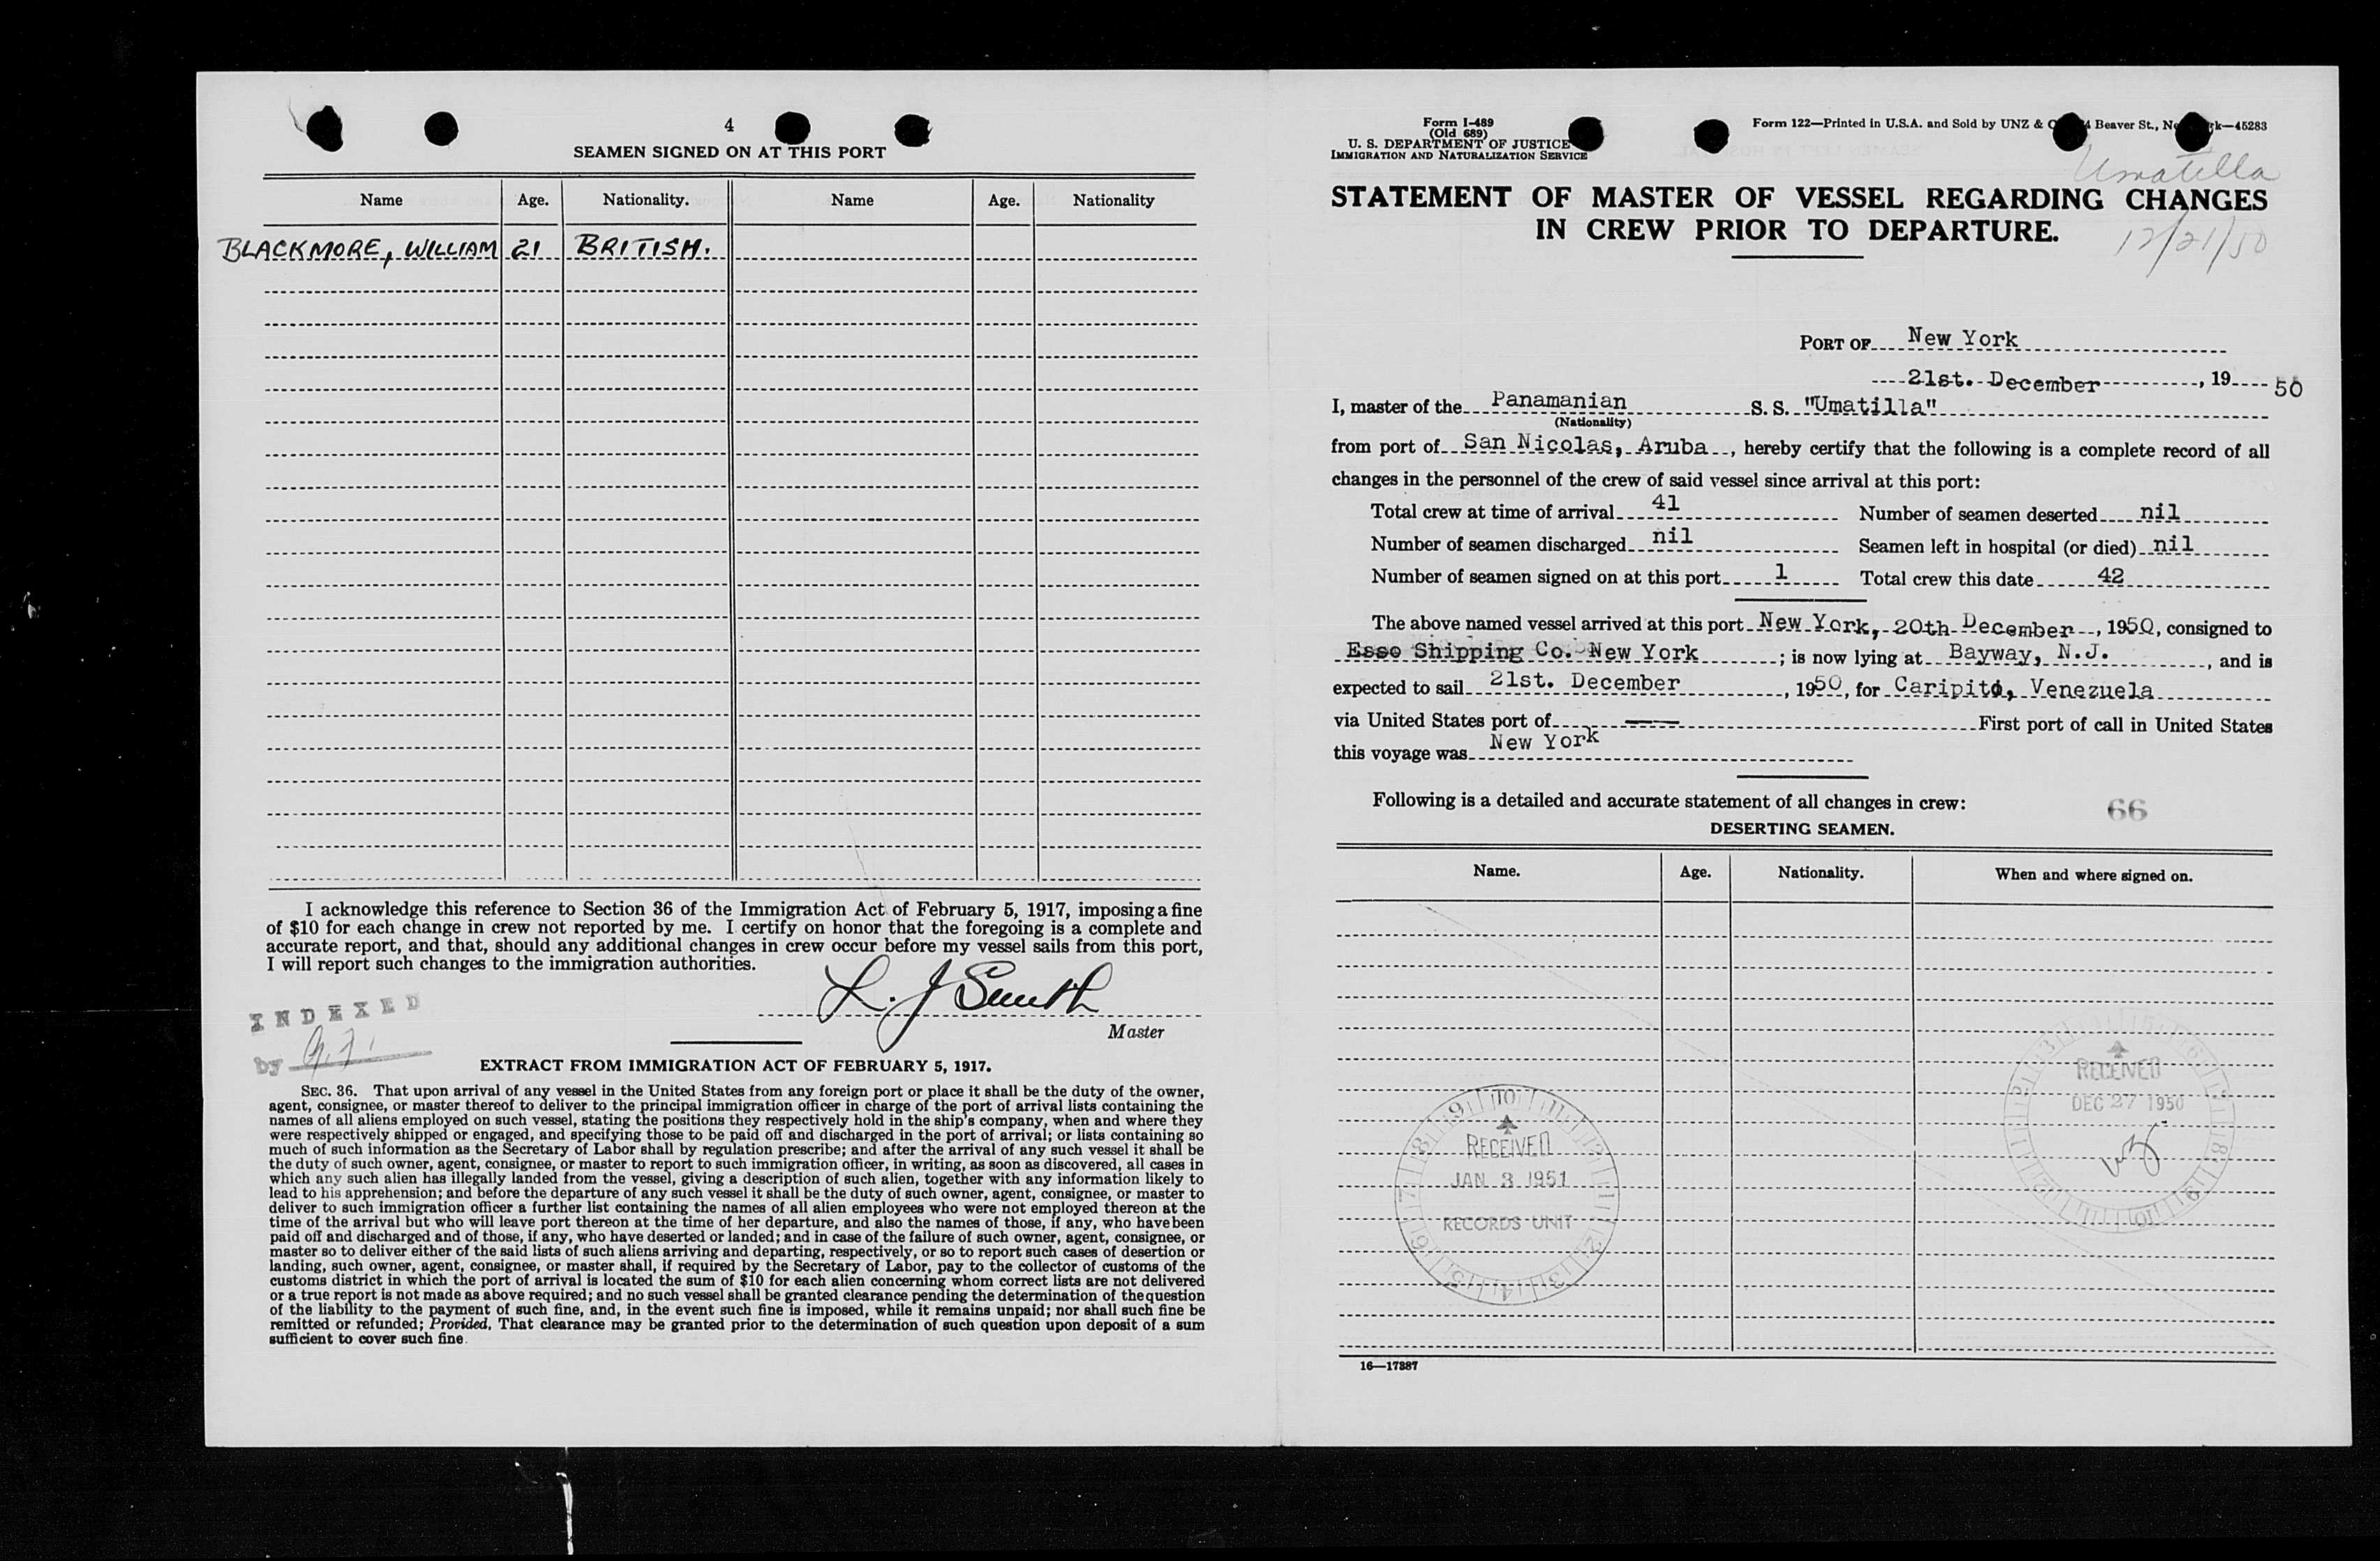 4
SEAMEN SIGNED ON AT THIS PORT
Name Age. Nationality. Name Age. Nationality
BLACKMORE, WILLIAM 21 BRITISH.
I acknowledge this reference to Section 36 of the Immigration Act of February 5, 1917, imposing a fine
of $10 for each change in crew not reported by me. I certify on honor that the foregoing is a complete and
accurate report, and that, should any additional changes in crew occur before my vessel sails from this port,
I will report such changes to the immigration authorities.
L. J Smith
Master
INDEXED
by
EXTRACT FROM IMMIGRATION ACT OF FEBRUARY 5, 1917.
SEC. 36. That upon arrival of any vessel in the United States from any foreign port or place it shall be the duty of the owner,
agent, consignee, or master thereof to deliver to the principal immigration officer in charge of the port of arrival lists containing the
names of all aliens employed on such vessel, stating the positions they respectively hold in the ship's company, when and where they
were respectively shipped or engaged, and specifying those to be paid off and discharged in the port of arrival; or lists containing so
much of such information as the Secretary of Labor shall by regulation prescribe; and after the arrival of any such vessel it shall be
the duty of such owner, agent, consignee, or master to report to such immigration officer, in writing, as soon as discovered, all cases in
which any such alien has illegally landed from the vessel, giving a description of such alien, together with any information likely to
lead to his apprehension; and before the departure of any such vessel it shall be the duty of such owner, agent, consignee, or master to
deliver to such immigration officer a further list containing the names of all alien employees who were not employed thereon at the
time of the arrival but who will leave port thereon at the time of her departure, and also the names of those, if any, who have been
paid off and discharged and of those, if any, who have deserted or landed; and in case of the failure of such owner, agent, consignee, or
master so to deliver either of the said lists of such aliens arriving and departing, respectively, or so to report such cases of desertion or
landing, such owner, agent, consignee, or master shall, if required by the Secretary of Labor, pay to the collector of customs of the
customs district in which the port of arrival is located the sum of $10 for each alien concerning whom correct lists are not delivered
or a true report is not made as above required; and no such vessel shall be granted clearance pending the determination of the question
of the liability to the payment of such fine, and, in the event such fine is imposed, while it remains unpaid; nor shall such fine be
remitted or refunded; Provided, That clearance may be granted prior to the determination of such question upon deposit of a sum
sufficient to cover such fine.
Form I-489
(Old 689)
U. S. DEPARTMENT OF JUSTICE
IMMIGRATION AND NATURALIZATION SERVICE
Form 122—Printed in U.S.A. and Sold by UNZ & Beaver St., 45283
Umatilla
STATEMENT OF MASTER OF VESSEL REGARDING CHANGES
IN CREW PRIOR TO DEPARTURE.
12/21/50
PORT OF New York
21st. December, 19 50
I, master of the Panamanian S. S. "Umatilla"
(Nationality)
from port of San Nicolas, Aruba, hereby certify that the following is a complete record of all
changes in the personnel of the crew of said vessel since arrival at this port:
Total crew at time of arrival 41 Number of seamen deserted nil
Number of seamen discharged nil Seamen left in hospital (or died) nil
Number of seamen signed on at this port 1 Total crew this date 42
The above named vessel arrived at this port New York, 20th December, 1950, consigned to
Esso Shipping Co. New York; is now lying at Bayway, N.J., and is
expected to sail 21st. December, 1950, for Caripito, Venezuela
via United States port of — First port of call in United States
this voyage was New York
Following is a detailed and accurate statement of all changes in crew:
66
DESERTING SEAMEN.
Name. Age. Nationality. When and where signed on.
RECEIVED
DEC 27 1950
RECEIVED
JAN 3 1951
RECORDS UNIT
16—17887